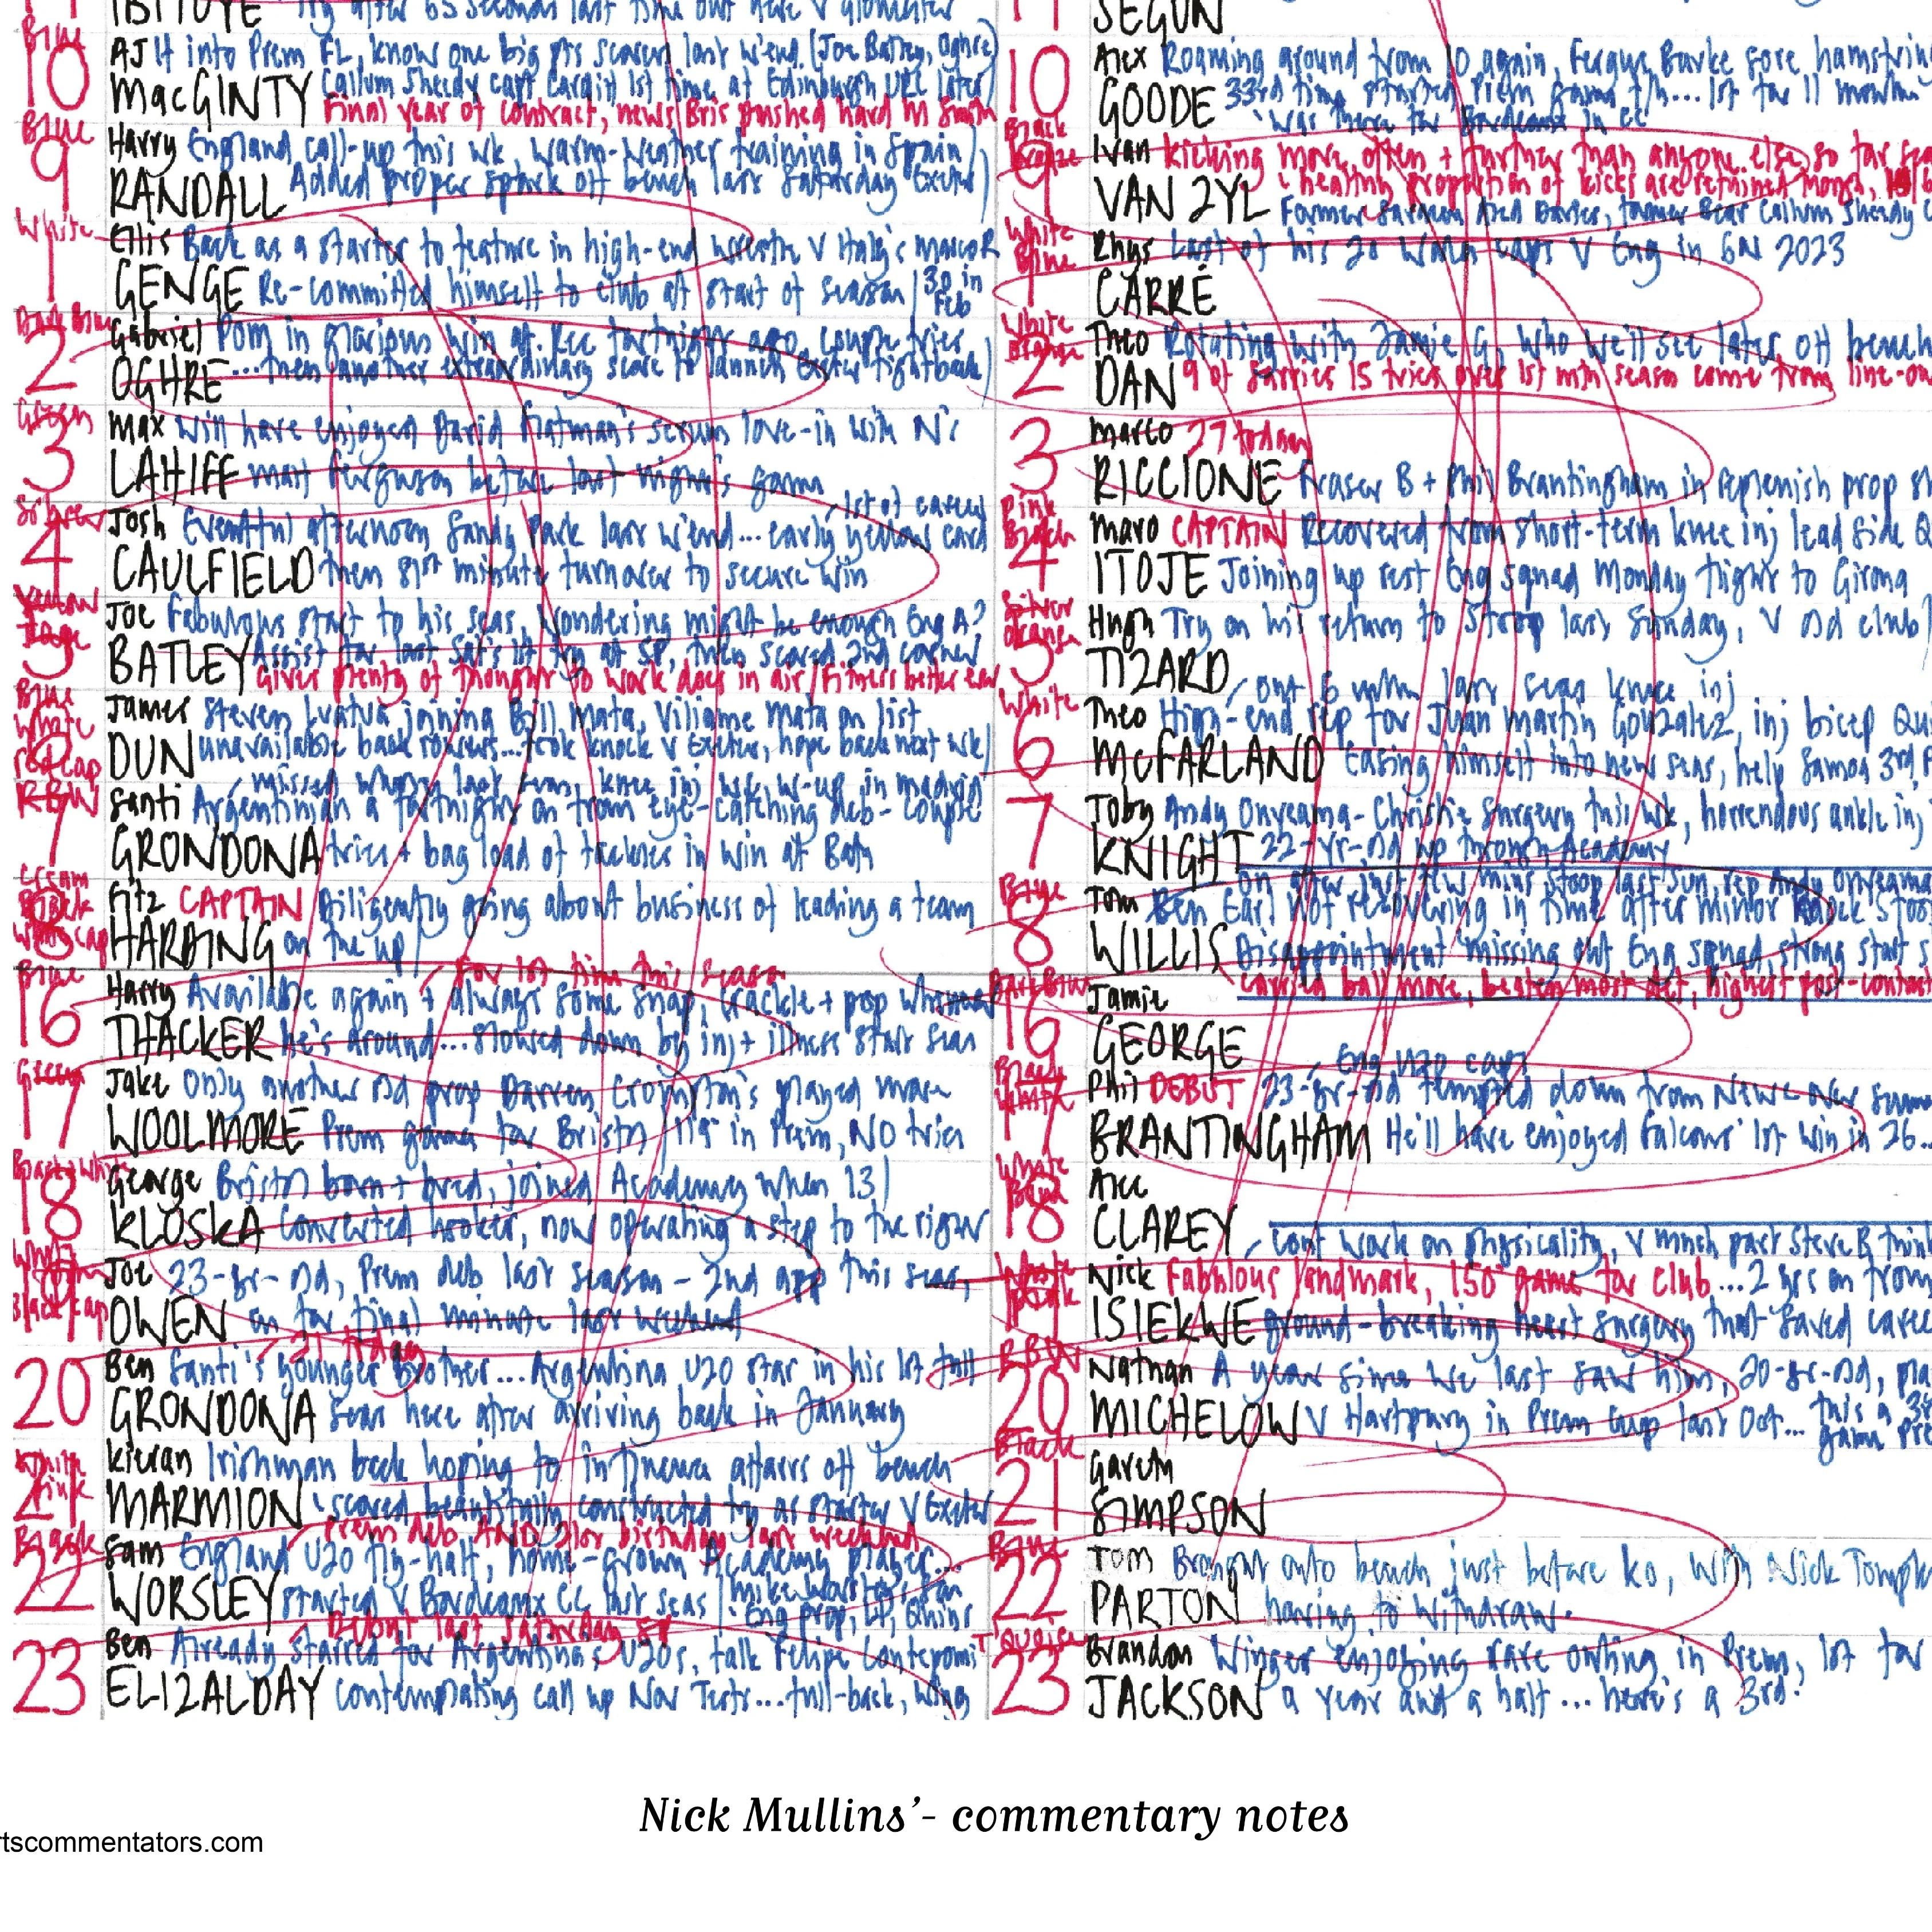 IBITOYE Try after 65 seconds last time out here v Gloucester
Blue
10 AJ 14 into Prem FL, knows one big pts scorer last w'end (Joe Batley, Oghre)
MacGINTY Callum Sheedy capt Cardiff 1st time at Edinburgh URC later
Final year of contract, news Bris pushed hard M Smith
Blue
9 Harry England call-up this wk, warm-weather training in Spain
RANDALL Added proper spark off bench last Saturday Exeter
White
1 Ellis Back as a starter to feature in high-end v Marco R
GENGE Re-committed himself to club at start of season 30 in Feb
Dark Blue
2 Gabriel POM in glorious win at Rec fortnight ago, couple tries
OGHRE ...then another extraordinary score to launch Exeter fightback
Green
3 Max Will have enjoyed David Flatman's scrum love-in with N'c
LAHIFF Matt Ferguson before last night's game
1st of career
Silver
4 Josh Eventful afternoon Sandy Park last w'end... early yellow card
CAULFIELD then 81st minute turnover to secure win
Yellow
5 Joe Fabulous start to his seas, wondering might be enough Eng A?
BATLEY Assist for last Sat's 1st try at SP, then scored 2nd corner
Gives plenty of thought to work does in air/Fitness better
Blue White red cap
6 James Steven Luatua joining Bill Mata, Viliame Mata on list
DUN unavailable back rowers... took knock v Exeter, hope back next wk
missed whole last knee inj w-up in Madrid
RBW
7 Santi Argentinian a fortnight on from eye-catching deb - couple
GRONDONA tries + bag load of tackles in win at Bath
Cream Black White cap
8 Fitz CAPTAIN Diligently going about business of leading a team
HARDING on the up
For 1st time this season
Blue
16 Harry Available again + always some snap, crackle + pop whenever
THACKER he's around... slowed down by inj + illness start seas
Green
17 Jake Only another old prop Darren Crompton's played more
WOOLMORE Prem games for Bristol / 119 in Prem, NO tries
18 George Bristol born + bred, joined Academy when 13
KLOSKA Converted hooker, now operating a step to the right
Black cap
19 Joe 23-yr-old, Prem deb last season - 2nd app this seas,
OWEN on for final minute last weekend
21 today
20 Ben Santi's younger brother... Argentina U20 star in his 1st full
GRONDONA seas here after arriving back in January
White Pink
21 Kieran Irishman back hoping to influence affairs off bench
MARMION scored beautifully constructed try as starter v Exeter
Prem deb AND 21st birthday last weekend
Black
22 Sam England U20 fly-half, home-grown Academy player...
WORSLEY started v Bordeaux CC last seas / Mike Worsley's son
Eng prop, LI, Quins
Debut last Saturday SP
23 Ben Already starred for Argentina's U20s, talk Felipe Contepomi
ELIZALDAY contemplating call up Nov Tests... full-back, wing
11 SEGUN
10 Alex Roaming around from 10 again, Fergus Burke sore hamstring
GOODE 33rd time started Prem game f/h... 1st for 11 months
Was there for Bordeaux in CC
Black
9 Ivan kicking more often + further than anyone else so far
VAN ZYL healthy proportion of kicks are retained
Former Saracen Aled Davies, former Bear Callum Sheedy
White Blue
1 Rhys Last of his 20 Wales caps v Eng in 6N 2023
CARRÉ
White Orange
2 Theo Rotating with Jamie G, who we'll see later off bench
DAN 9 of Sarries 15 tries over 1st mth season come from line-out
3 Marco 27 today
RICCIONE Fraser B + Phil Brantingham in replenish prop
Pink Black
4 Maro CAPTAIN Recovered from short-term knee inj lead side
ITOJE Joining up rest Eng squad Monday flight to Girona
Silver Orange
5 Hugh Try on his return to Stoop last Sunday, v old club
TIZARD
out 6 mths last seas knee inj
White
6 Theo High-end rep for Juan Martin Gonzalez, inj bicep
McFARLAND Easing himself into new seas, help Samoa 3rd
7 Toby Andy Onyeama-Christie surgery this wk, horrendous ankle inj
KNIGHT 22-yr-old up through Academy
on after just few mins Stoop last Sun, rep Andy Onyeama
Beige
8 Tom Ben Earl not recovering in time after minor knock
WILLIS Disappointment missing out Eng squad, strong start
carried ball more, beaten most def, highest post-contact
Dark Blue
16 Jamie
GEORGE
Eng U20 caps
Black White
17 Phil DEBUT 23-yr-old tempted down from Newc over
BRANTINGHAM He'll have enjoyed Falcons' 1st win in 26...
White
18 Alec
CLAREY
cont work on physicality, v much part Steve B
White Pink
19 Nick Fabulous landmark, 150 game for club... 2 yrs on from
ISIEKWE ground-breaking heart surgery that saved
RBW
20 Nathan A year since we last saw him, 20-yr-old,
MICHELOW v Hartpury in Prem Cup last Oct... this a 3rd
game
Black
21 Gareth
SIMPSON
Blue
22 Tom Brought onto bench just before ko, with Nick
PARTON having to withdraw.
T'Quoise
23 Brandon Winger enjoying rare outing in Prem, 1st for
JACKSON a year and a half... here's a 3rd.
Nick Mullins'- commentary notes
rtscommentators.com